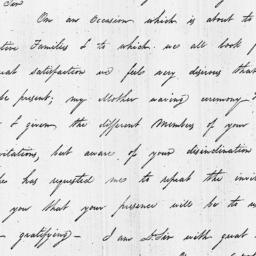 Sir
On an Occasion which is about to
tive Families & to which we all look f
eat satisfaction we feel very desirous that
be present; my Mother waving ceremony
& given the different Members of your
vitations, but aware of your disinclination
has requested me to repeat the invi
you that your presence will be to u
gratifying — I am D. Sir with great